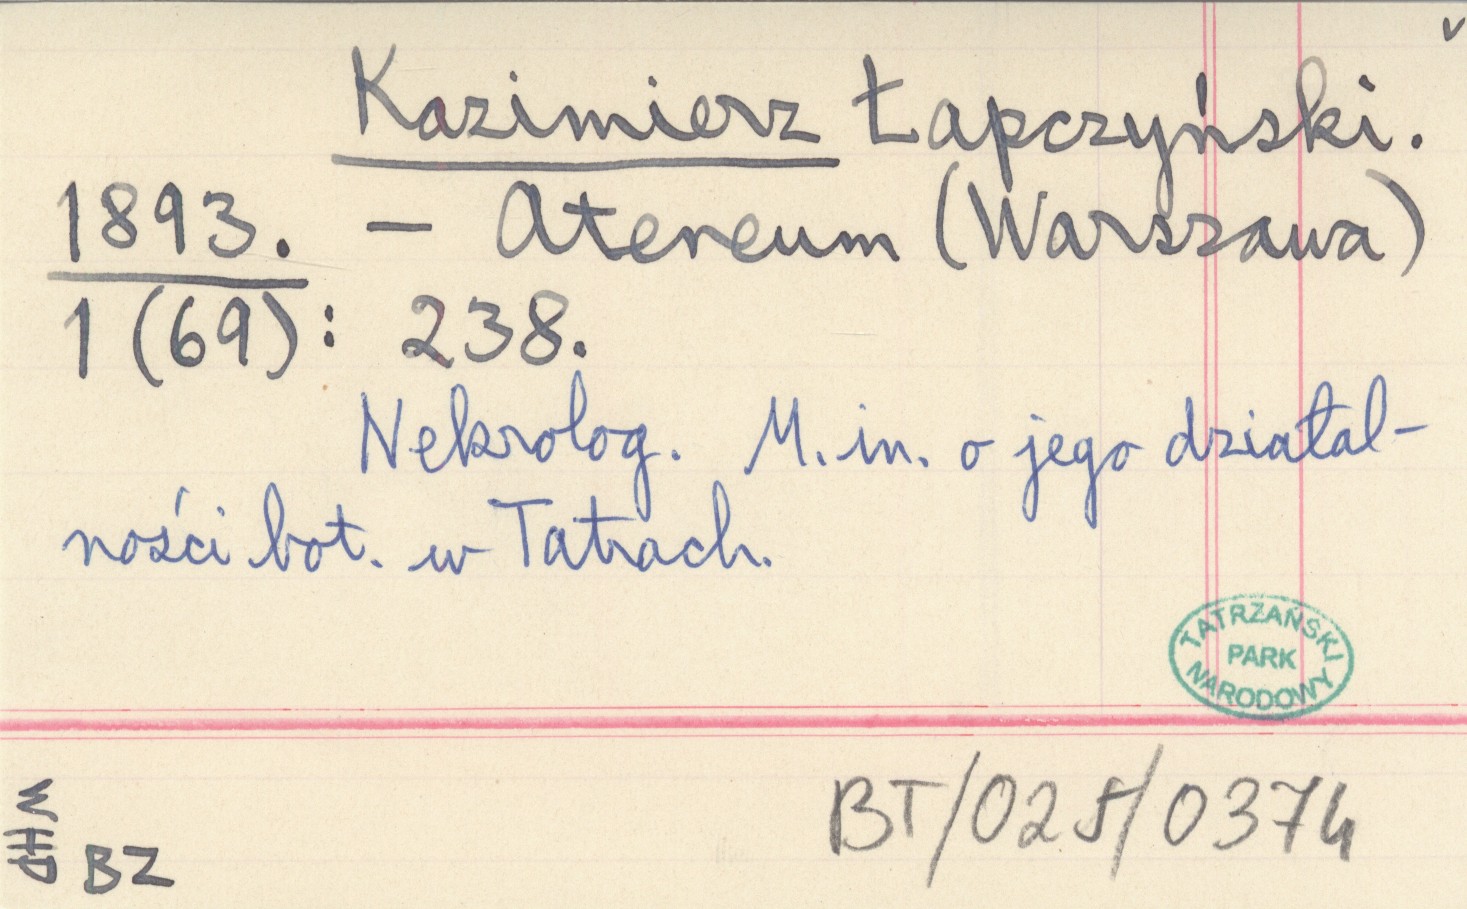 v
Kazimierz Łapczyński.
1893. – Ateneum (Warszawa)
1 (69): 238.
Nekrolog. M. in. o jego działal-
ności bot. w Tatrach.
TATRZAŃSKI
PARK
NARODOWY
BT/025/0374
BZ